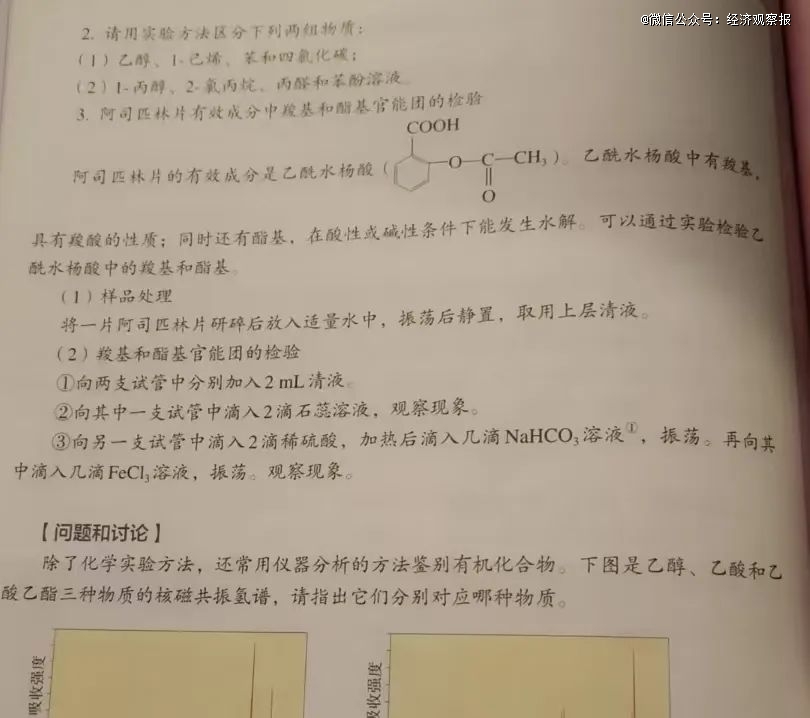 @微信公众号：经济观察报
2. 请用实验方法区分下列两组物质：
（1）乙醇、1-己烯、苯和四氯化碳；
（2）1-丙醇、2-氯丙烷、丙醛和苯酚溶液。
3. 阿司匹林片有效成分中羧基和酯基官能团的检验
COOH
阿司匹林片的有效成分是乙酰水杨酸（ O—C—CH₃）。乙酰水杨酸中有羧基，
O
具有羧酸的性质；同时还有酯基，在酸性或碱性条件下能发生水解。可以通过实验检验乙
酰水杨酸中的羧基和酯基。
（1）样品处理
将一片阿司匹林片研碎后放入适量水中，振荡后静置，取用上层清液。
（2）羧基和酯基官能团的检验
①向两支试管中分别加入2 mL清液。
②向其中一支试管中滴入2滴石蕊溶液，观察现象。
③向另一支试管中滴入2滴稀硫酸，加热后滴入几滴NaHCO₃溶液①，振荡。再向其
中滴入几滴FeCl₃溶液，振荡。观察现象。
【问题和讨论】
除了化学实验方法，还常用仪器分析的方法鉴别有机化合物。下图是乙醇、乙酸和乙
酸乙酯三种物质的核磁共振氢谱，请指出它们分别对应哪种物质。
吸收强度
吸收强度